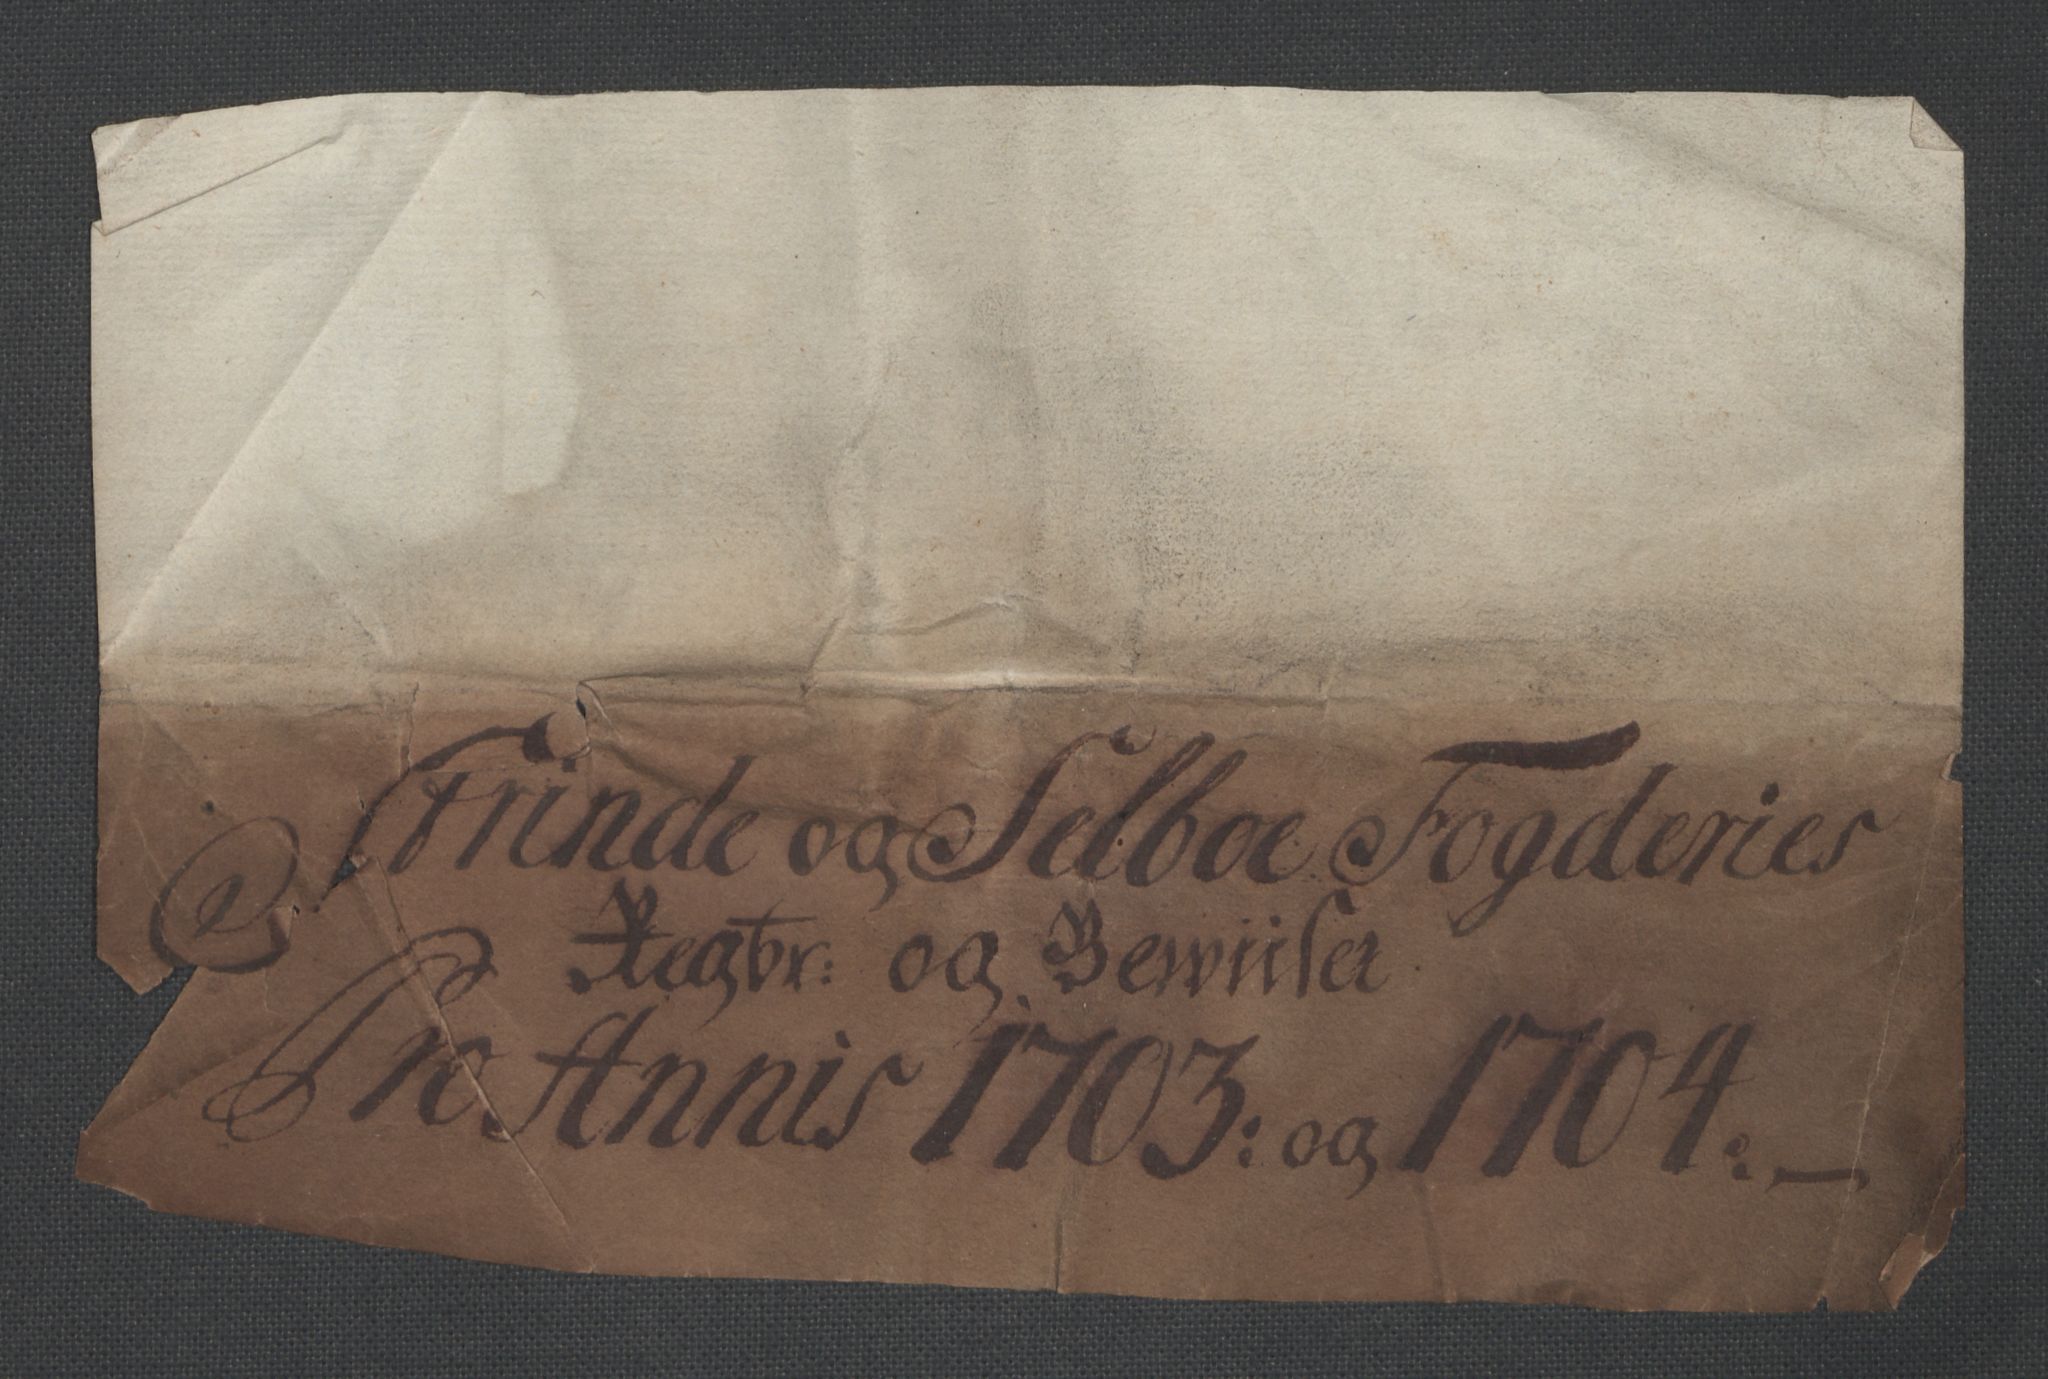 Strinde og Selboe Fogderies
Regbr: og Bewiiser
Pro Annis 1703: og 1704:—